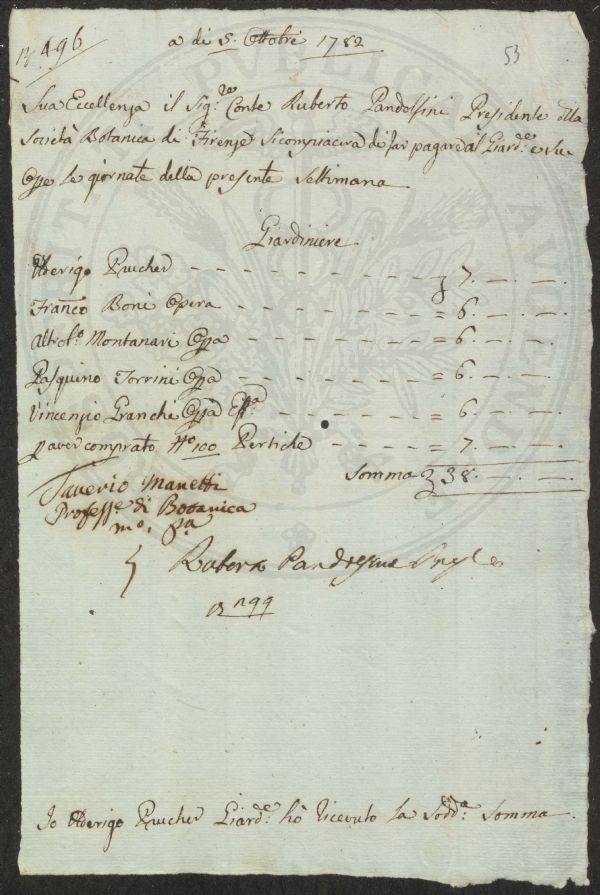 496
a di 5. Ottobre 1782
53
Sua Eccellenza il Sig:re Conte Ruberto Pandolfini Presidente della
Società Botanica di Firenze si compiacerà di far pagare al Giard:e e sue
Opre le giornate della presente Settimana
Giardiniere
Uderigo Prucher - - - - - - - - - - - 7. —. —.
Franco Boni Opera - - - - - - - - - - = 6. —. —.
Montanari Oppa - - - - - - - - - = 6. —. —.
Pasquino Torrini Oppa - - - - - - - - - = 6. —. —.
Vincenzio Granchi Oppa - - - - - - - = 6. —. —.
p aver comprato No 100 Pertiche - - - - - = 7. —. —.
Somma 38. —. —.
Saverio Manetti
Profess:e di Botanica
mo. pa
Ruberto Pandolfini
Io Uderigo Prucher Giard:e hò ricevuto la Sodd:a Somma.